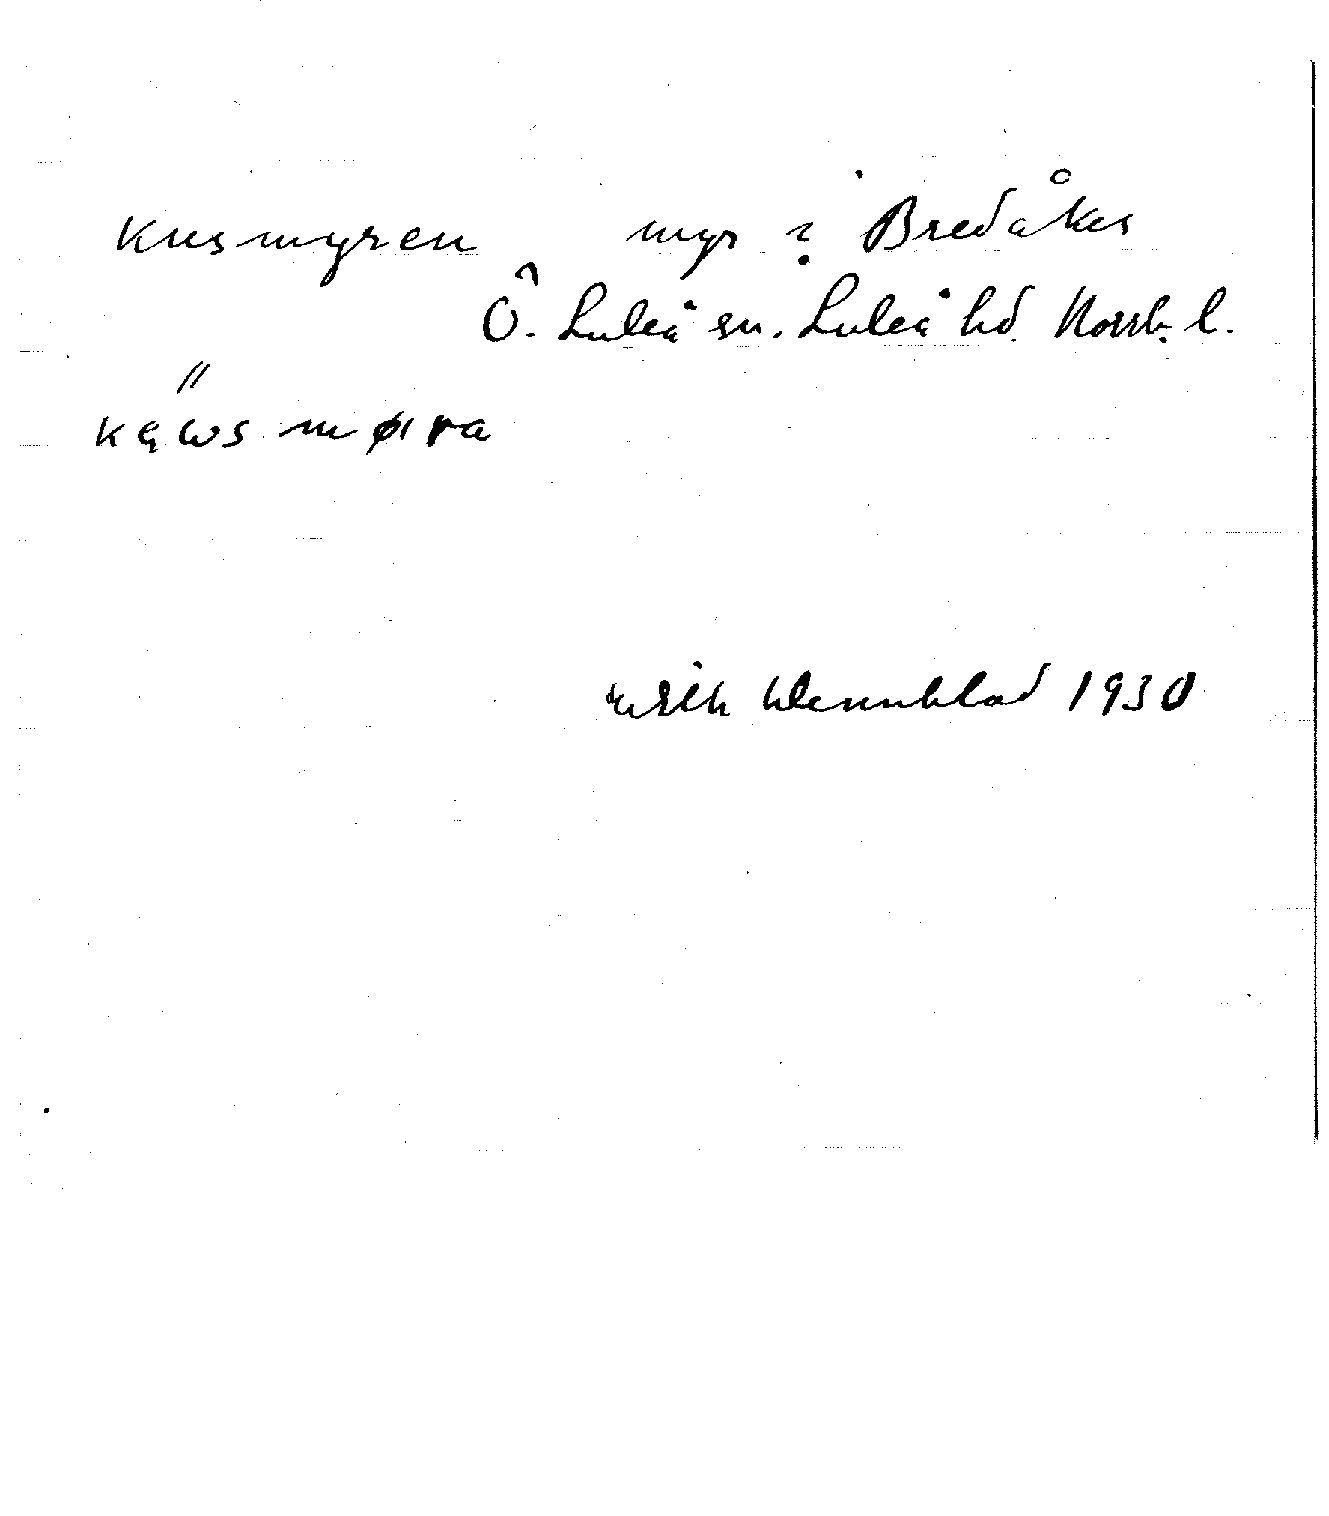 Kusmyren myr i Bredåker
Ö. Luleå sn. Luleå hd. Norrb. l.
Erik Wennblad 1930